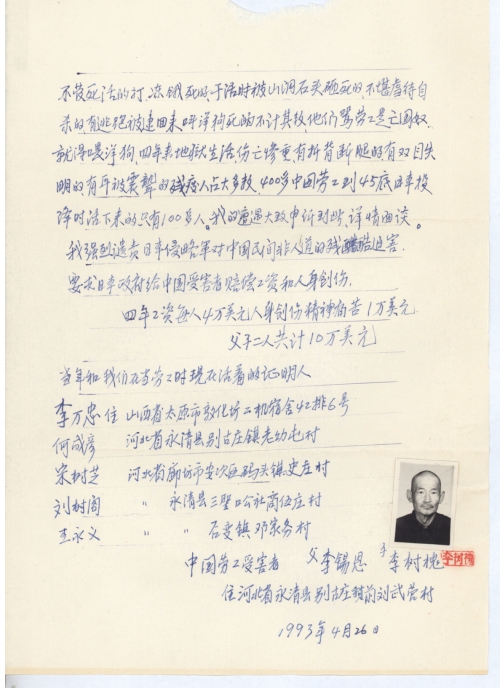 不管死活的打、冻饿死的、干活时被山洞石头砸死的、不堪虐待自
杀的有逃跑被逮回来喂洋狗死的不计其数,他们骂劳工是亡国奴
就得喂洋狗,四年来地狱生活伤亡惨重有折背断腿的有双目失
明的有耳被震聋的残废人占大多数 400多中国劳工到45底日本投
降时活下来的只有100多人。我的遭遇大致申诉到此,详情面谈。
我强烈谴责日本侵略军对中国民间非人道的残酷迫害.
要求日本政府给中国受害者赔偿工资和人身创伤.
四年工资每人4万美元人身创伤精神痛苦1万美元
父子二人共计10万美元
当年和我们在当劳工时现在活着的证明人
李万忠住 山西省太原市敦化坊二机宿舍42排6号
何成彦 河北省永清县别古庄镇老幼屯村
宋树芝 河北省廊坊市安次区码头镇史庄村
刘树阁 〃 永清县三圣口公社商伍庄村
王永义 〃 〃 石变镇邓家务村
中国劳工受害者 父李锡恩 子李树槐
住河北省永清县别古庄镇前刘武营村
1993年4月26日